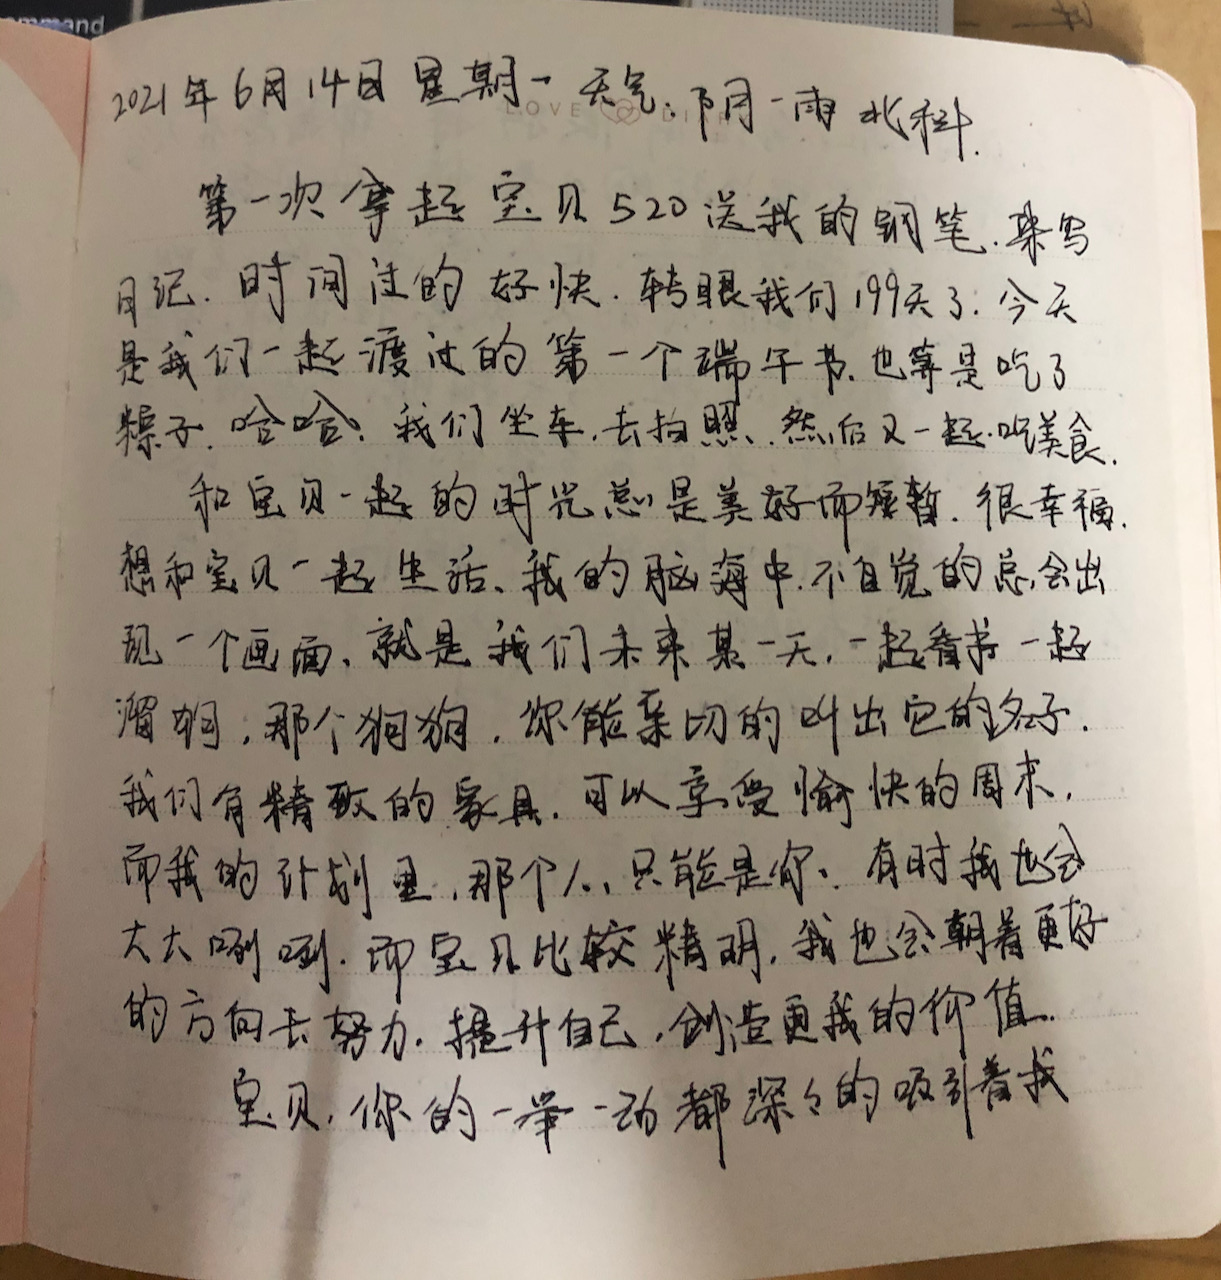 command
LOVE DIARY
2021年6月14日 星期一 天气:阴-雨 北科.
第一次拿起宝贝520送我的钢笔.来写
日记.时间过的好快.转眼我们199天了.今天
是我们一起渡过的第一个端午节.也算是吃了
粽子.哈哈!我们坐车.去拍照.然后又一起吃美食.
和宝贝一起的时光总是美好而短暂.很幸福.
想和宝贝一起生活、我的脑海中.不自觉的总会出
现一个画面、就是我们未来某一天,一起看书一起
溜狗,那个狗狗,你能亲切的叫出它的名子.
我们有精致的家具.可以享受愉快的周末,
而我的计划里,那个人,只能是你、有时我也会
大大咧咧.而宝贝比较精明,我也会朝着更好
的方向去努力.提升自己,创造更我的价值.
宝贝,你的一举一动都深々的吸引着我